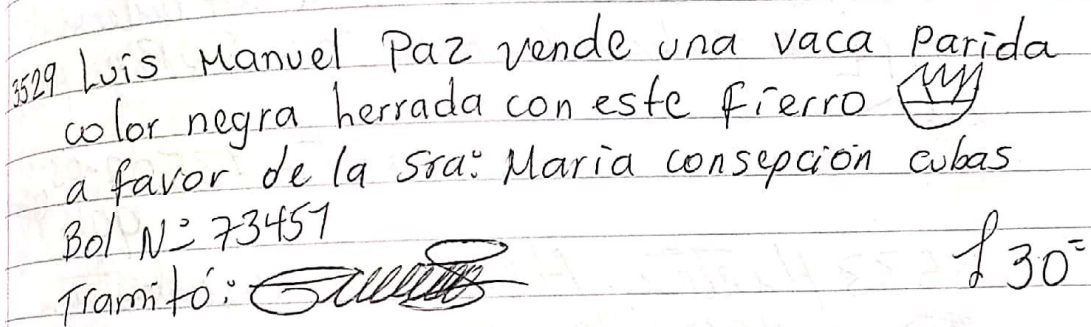 3529 Luis Manuel Paz vende una vaca parida
color negra herrada con este fierro
a favor de la Sra: Maria consepción cubas
Bol Nº 73451
Tramitó:
£ 30=